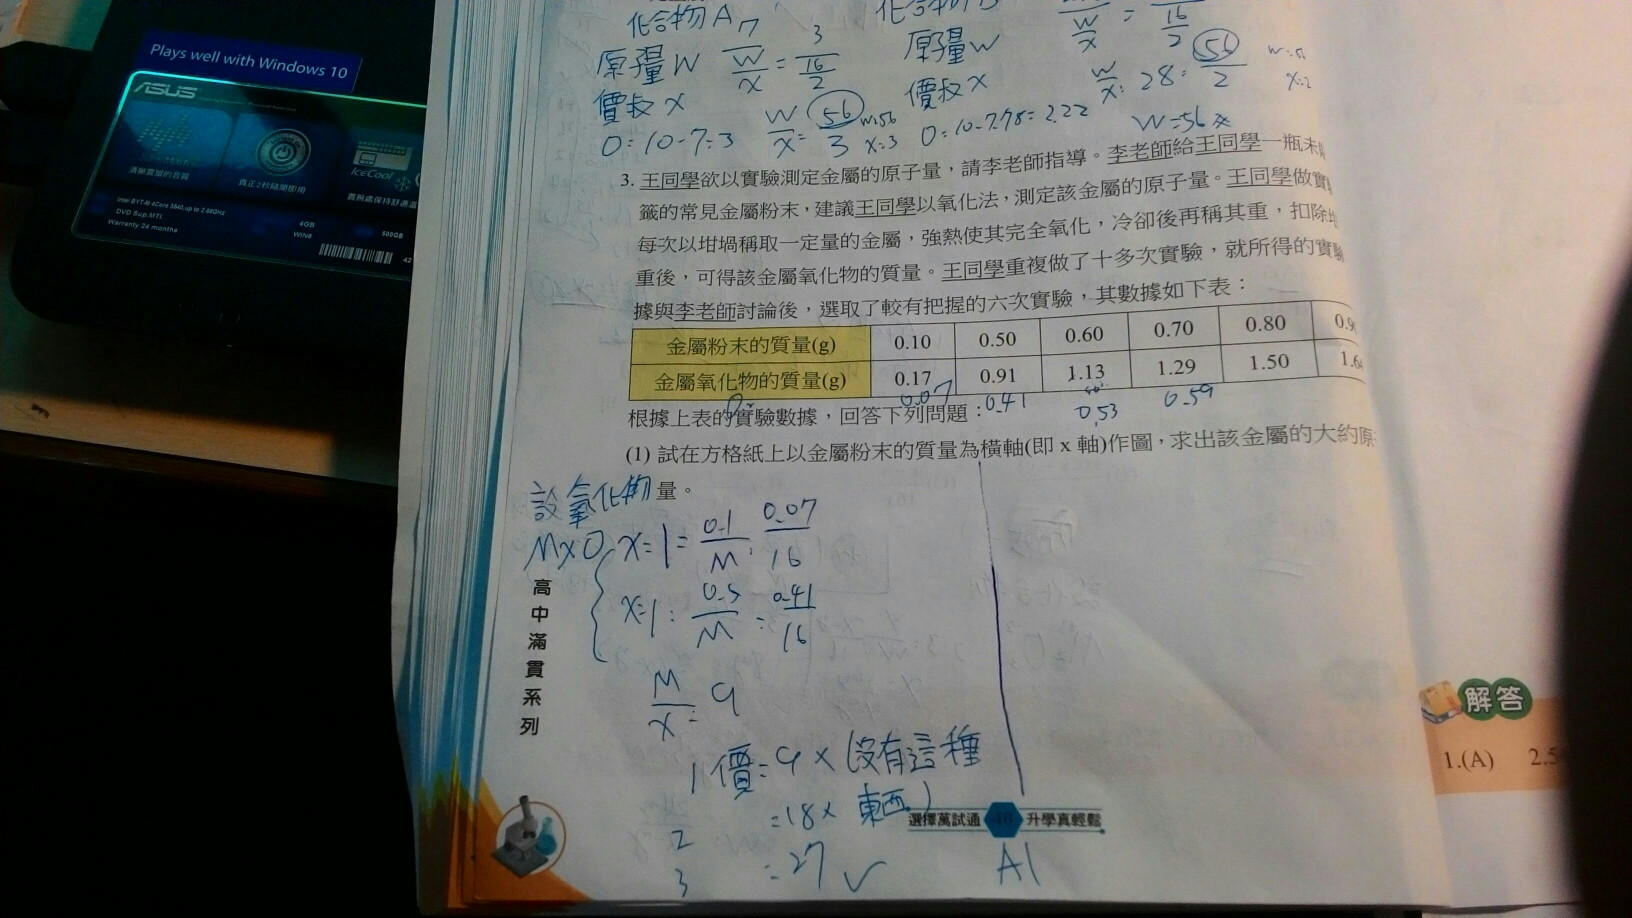 Plays well with Windows 10
ASUS
清晰震撼的音質
真正2秒隨開即用
IceCool
Intel BYT-M 4Core 3540,up to 2.66GHz
DVD Sup.MTL
Warranty 24 months
4GB
WIN8
500GB
化合物A
原子量W
W/x = 3/(16/2)
價數x
O=10-7=3
W/x = 56/3
W=56
x=3
原子量W
價數x
W/x = 28 = 56/2
x=2
O=10-7.78=2.22
W=56
3. 王同學欲以實驗測定金屬的原子量,請李老師指導。李老師給王同學一瓶未
籤的常見金屬粉末,建議王同學以氧化法,測定該金屬的原子量。王同學做實
每次以坩堝稱取一定量的金屬,強熱使其完全氧化,冷卻後再稱其重,扣除
重後,可得該金屬氧化物的質量。王同學重複做了十多次實驗,就所得的實驗
據與李老師討論後,選取了較有把握的六次實驗,其數據如下表:
金屬粉末的質量(g) 0.10 0.50 0.60 0.70 0.80
金屬氧化物的質量(g) 0.17 0.91 1.13 1.29 1.50
0.07 0.41 0.53 0.59
根據上表的實驗數據,回答下列問題:
(1) 試在方格紙上以金屬粉末的質量為橫軸(即 x 軸)作圖,求出該金屬的大約原
量。
設氧化物
MxO
x:1 = 0.1/M : 0.07/16
x:1 = 0.5/M : 0.41/16
M/x = 9
1價=9 x (沒有這種東西)
2 =18 x
3 =27 ✓
Al
高中滿貫系列
選擇萬試通
升學真輕鬆
解答
1.(A)